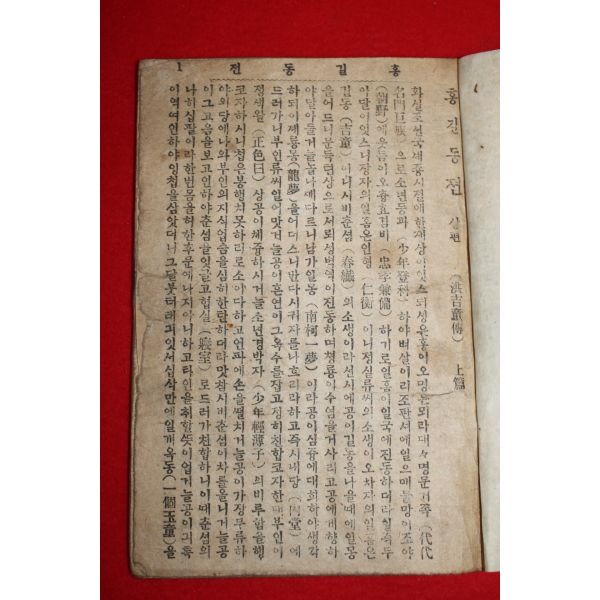 홍길동전 1
홍길동전 상편 (洪吉童傳) 上篇
화설조선국세종시절에한재상이잇스되셩은홍이오명은뫼라대々명문거족(代代
名門巨族)으로소년등과(少年登科)하야벼살이리조판셔에일으매물망이조야
(朝野)에웃듬이오츙효겸비(忠孝兼備)하기로일홈이일국에진동하더라일즉두
아달이잇스니장자의일홈은인형(仁衡)이니정실류씨의소생이오차자의일홈은
길동(吉童)이니시비춘셤(春纖)의소생이라션시에공이길동을나을때에일몽
을어드니문득텬상으로서뢰셩벽력이진동하며쳥룡이수염을거사리고공에게향하
야달아들거늘놀나깨다르니남가일몽(南柯一夢)이라공이심중에대희하야생각
하되이제룡몽(龍夢)을어더스니반다시귀자를나흐리라하고즉시내당(內堂)에
드러가니부인류씨일어맛거늘공이흔연이그옥수를잡고정히친합코자한대부인이
정색왈(正色曰)상공이체중하시거늘소년경박자(少年輕薄子)의비루함을행
코자하시니첩은봉행치못하리로소이다하고언파에손을떨치거늘공이가장무류하
야외당에나와부인의지식업슴을심히한탄하더라맛참시비춘셤이차를올니거늘공
이그고음을보고인하야춘셤을잇글고협실(寢室)로드러가친합하니이때춘셤의
나히십팔이라한번몸을허한후문에나지아니하고타인을취할뜻이업거늘공이긔특
이역여인하야잉첩을삼앗더니그달붓터태긔잇서십삭만에일개옥동(一個玉童)을